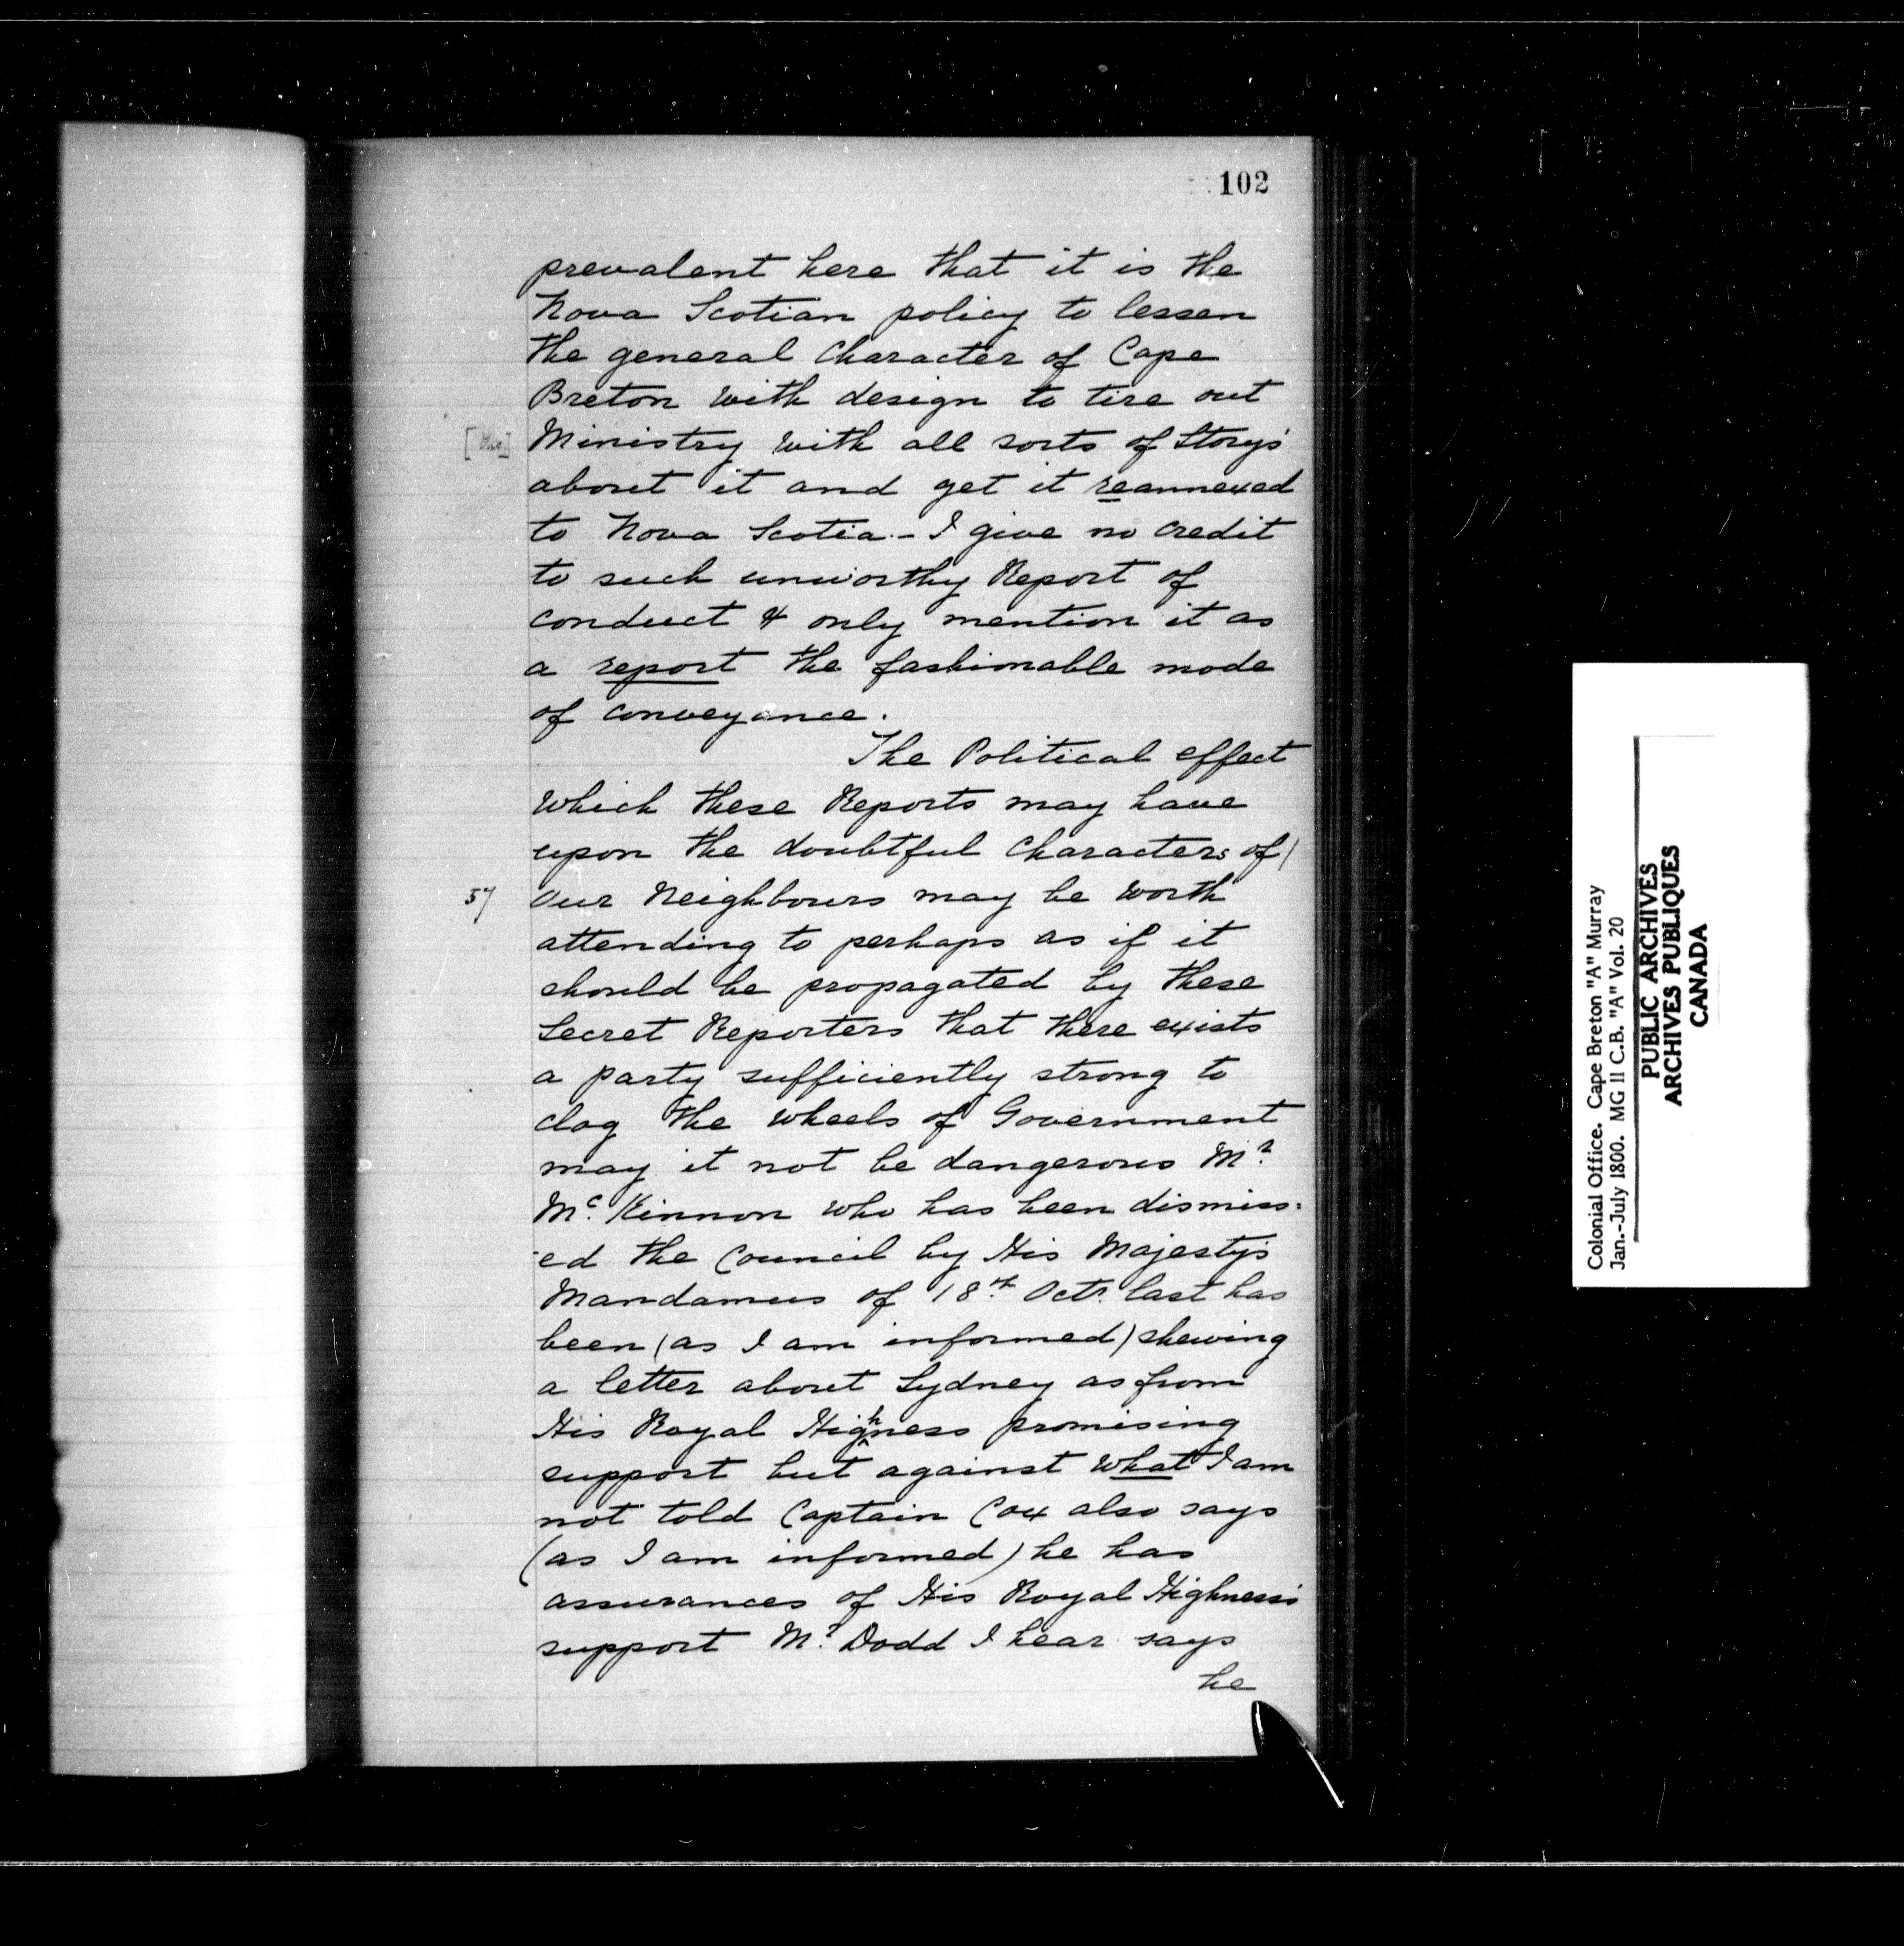 102
prevalent here that it is the
Nova Scotian policy to lessen
the general Character of Cape
Breton with design to tire out
[the] Ministry with all sorts of Story's
about it and get it reannexed
to Nova Scotia. - I give no credit
to such unworthy Report of
conduct & only mention it as
a report the fashionable mode
of conveyance.
The Political effect
which these Reports may have
upon the doubtful Characters of/
57 Our Neighbours may be worth
attending to perhaps as if it
should be propagated by these
Secret Reporters that there exists
a party sufficiently strong to
clog the wheels of Government
may it not be dangerous Mr.
Mc. Kinnon who has been dismiss-
-ed the Council by His Majesty's
Mandamus of 18th Octr. last has
been (as I am informed) shewing
a letter about Sydney as from
His Royal Highness promising
support but against what I am
not told Captain Cox also says
(as I am informed) he has
assurances of His Royal Highness's
support Mr. Dodd I hear says
he
Colonial Office. Cape Breton "A" Murray
Jan.--July 1800. MG 11 C.B. "A" Vol. 20
PUBLIC ARCHIVES
ARCHIVES PUBLIQUES
CANADA